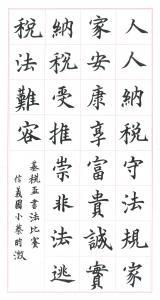 人人納稅守法規家
家安康享富貴誠實
納稅受推崇非法逃
稅法難容
基稅盃書法比賽
信義國小蔡昀